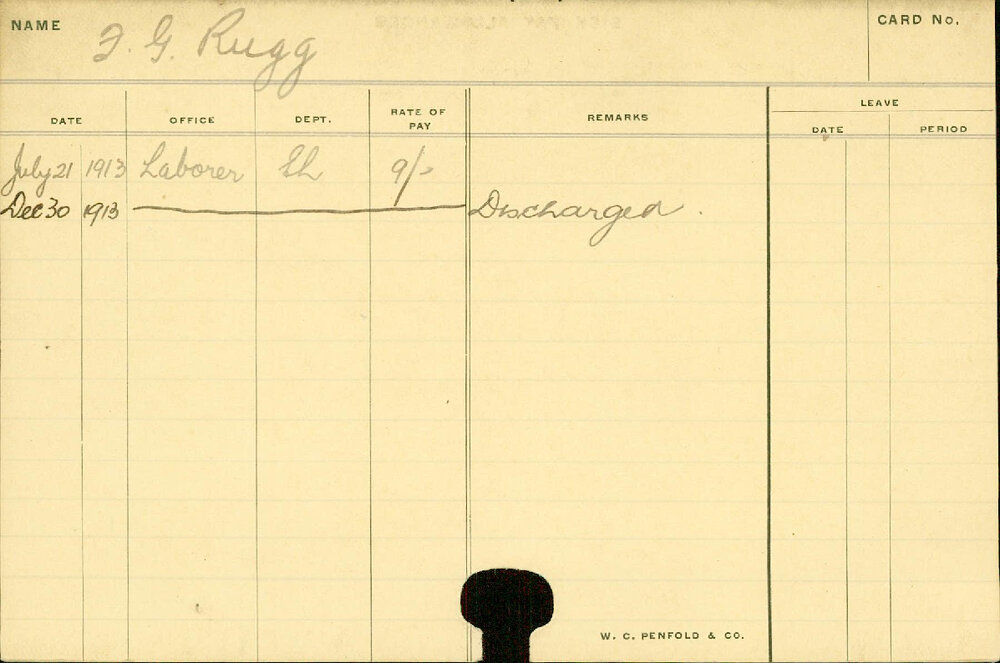 NAME F. G. Rugg CARD No.
LEAVE
DATE OFFICE DEPT. RATE OF PAY REMARKS DATE PERIOD
July 21 1913 Laborer EL 9/-
Dec 30 1913 Discharged.
W. C. PENFOLD & CO.